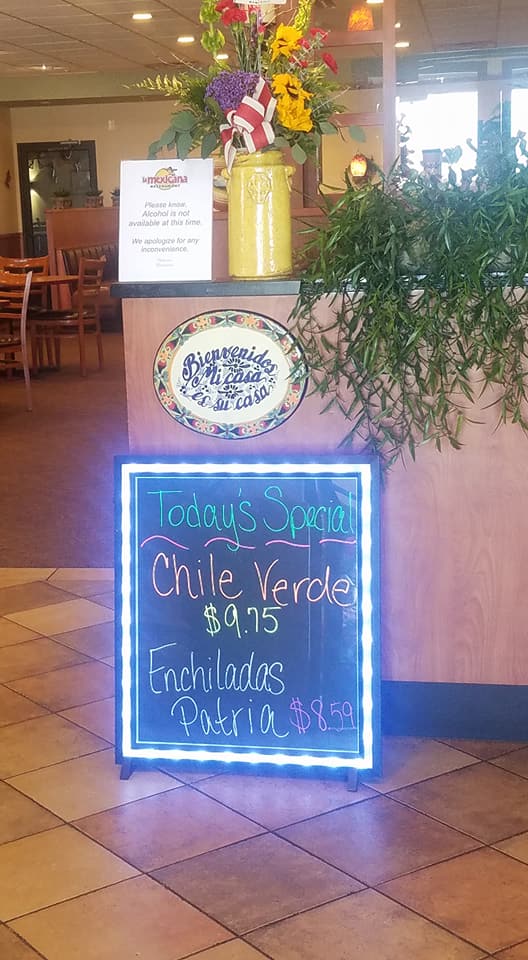 la mexicana
RESTAURANT
Please know,
Alcohol is not
available at this time.
We apologize for any
inconvenience.
Bienvenidos
Mi casa
es su casa
Today's Special
Chile Verde
$9.75
Enchiladas
Patria $8.59